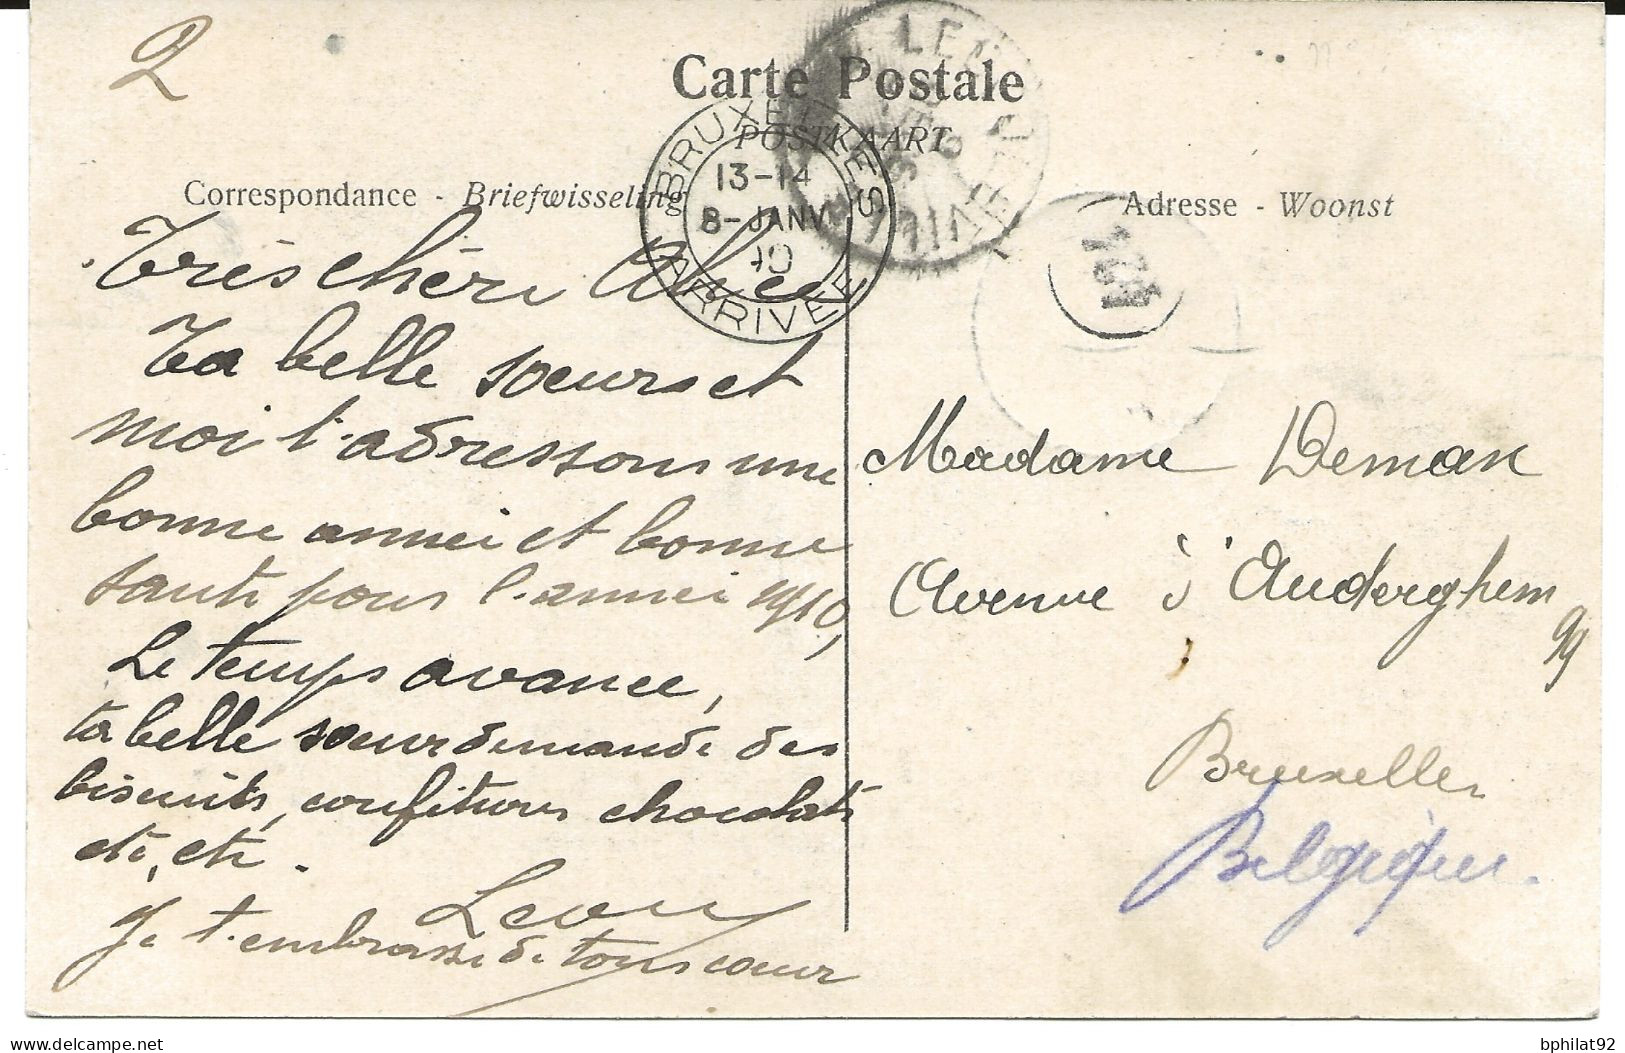 2
Carte Postale
POSTKAART
Correspondance - Briefwisseling
Adresse - Woonst
BRUXELLES
13-14
8-JANV
10
ARRIVEE
LEOPOLDVILLE
Très chère Alice
Ta belle sœur et
moi t'adressons une
bonne année et bonne
santé pour l'année 1910,
Le temps avance,
ta belle sœur demande des
biscuits, confitures chocolats
etc, etc.
Léon
Je t'embrasse de tout cœur
Madame Deman
Avenue d'Auderghem
99
Bruxelles
Belgique.
bphilat92